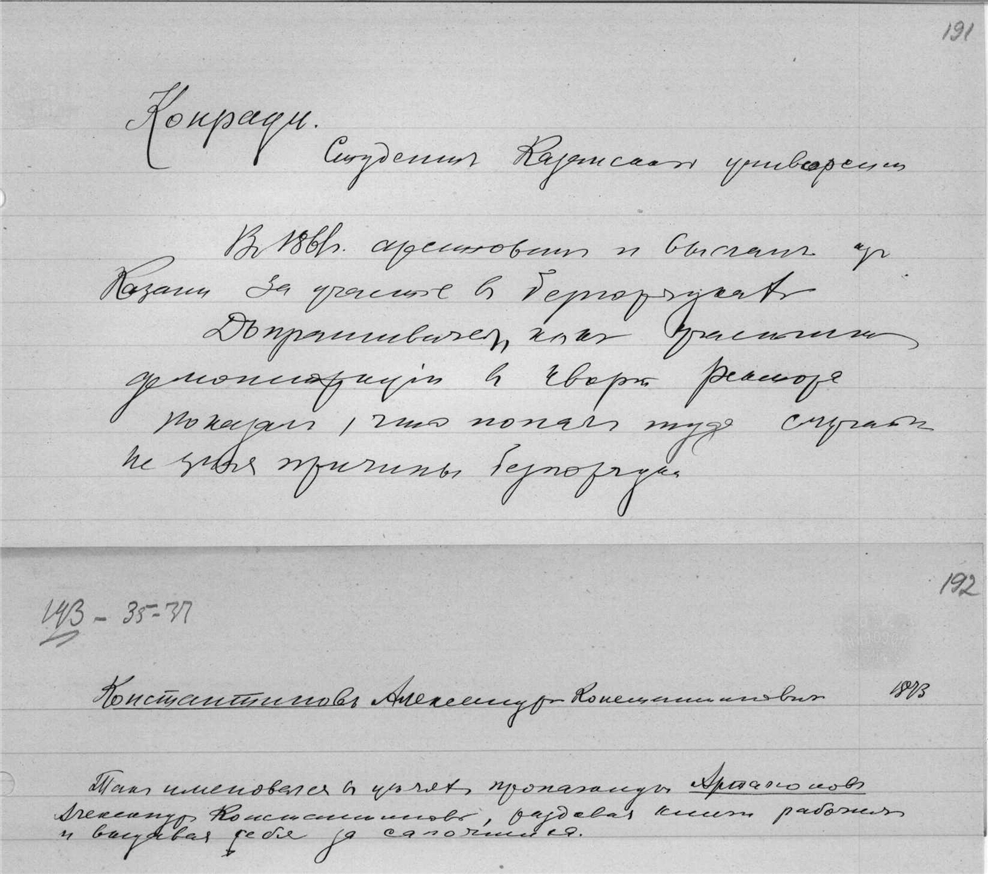 191
Конради.
Студентъ Казанскаго университ
Въ 1861г. арестованъ и высланъ изъ
Казани за участіе въ безпорядкахъ
Допрашивался, какъ участникъ
демонстраціи въ
показалъ, что попалъ туда случайно
не зная причины безпорядка
192
143 - 35-37
Константиновъ Александръ Константиновичъ 1873
Такъ именовался въ цѣляхъ пропаганды
Александръ Константиновъ, раздавая книги рабочимъ
и выдавая себя за сапожника.